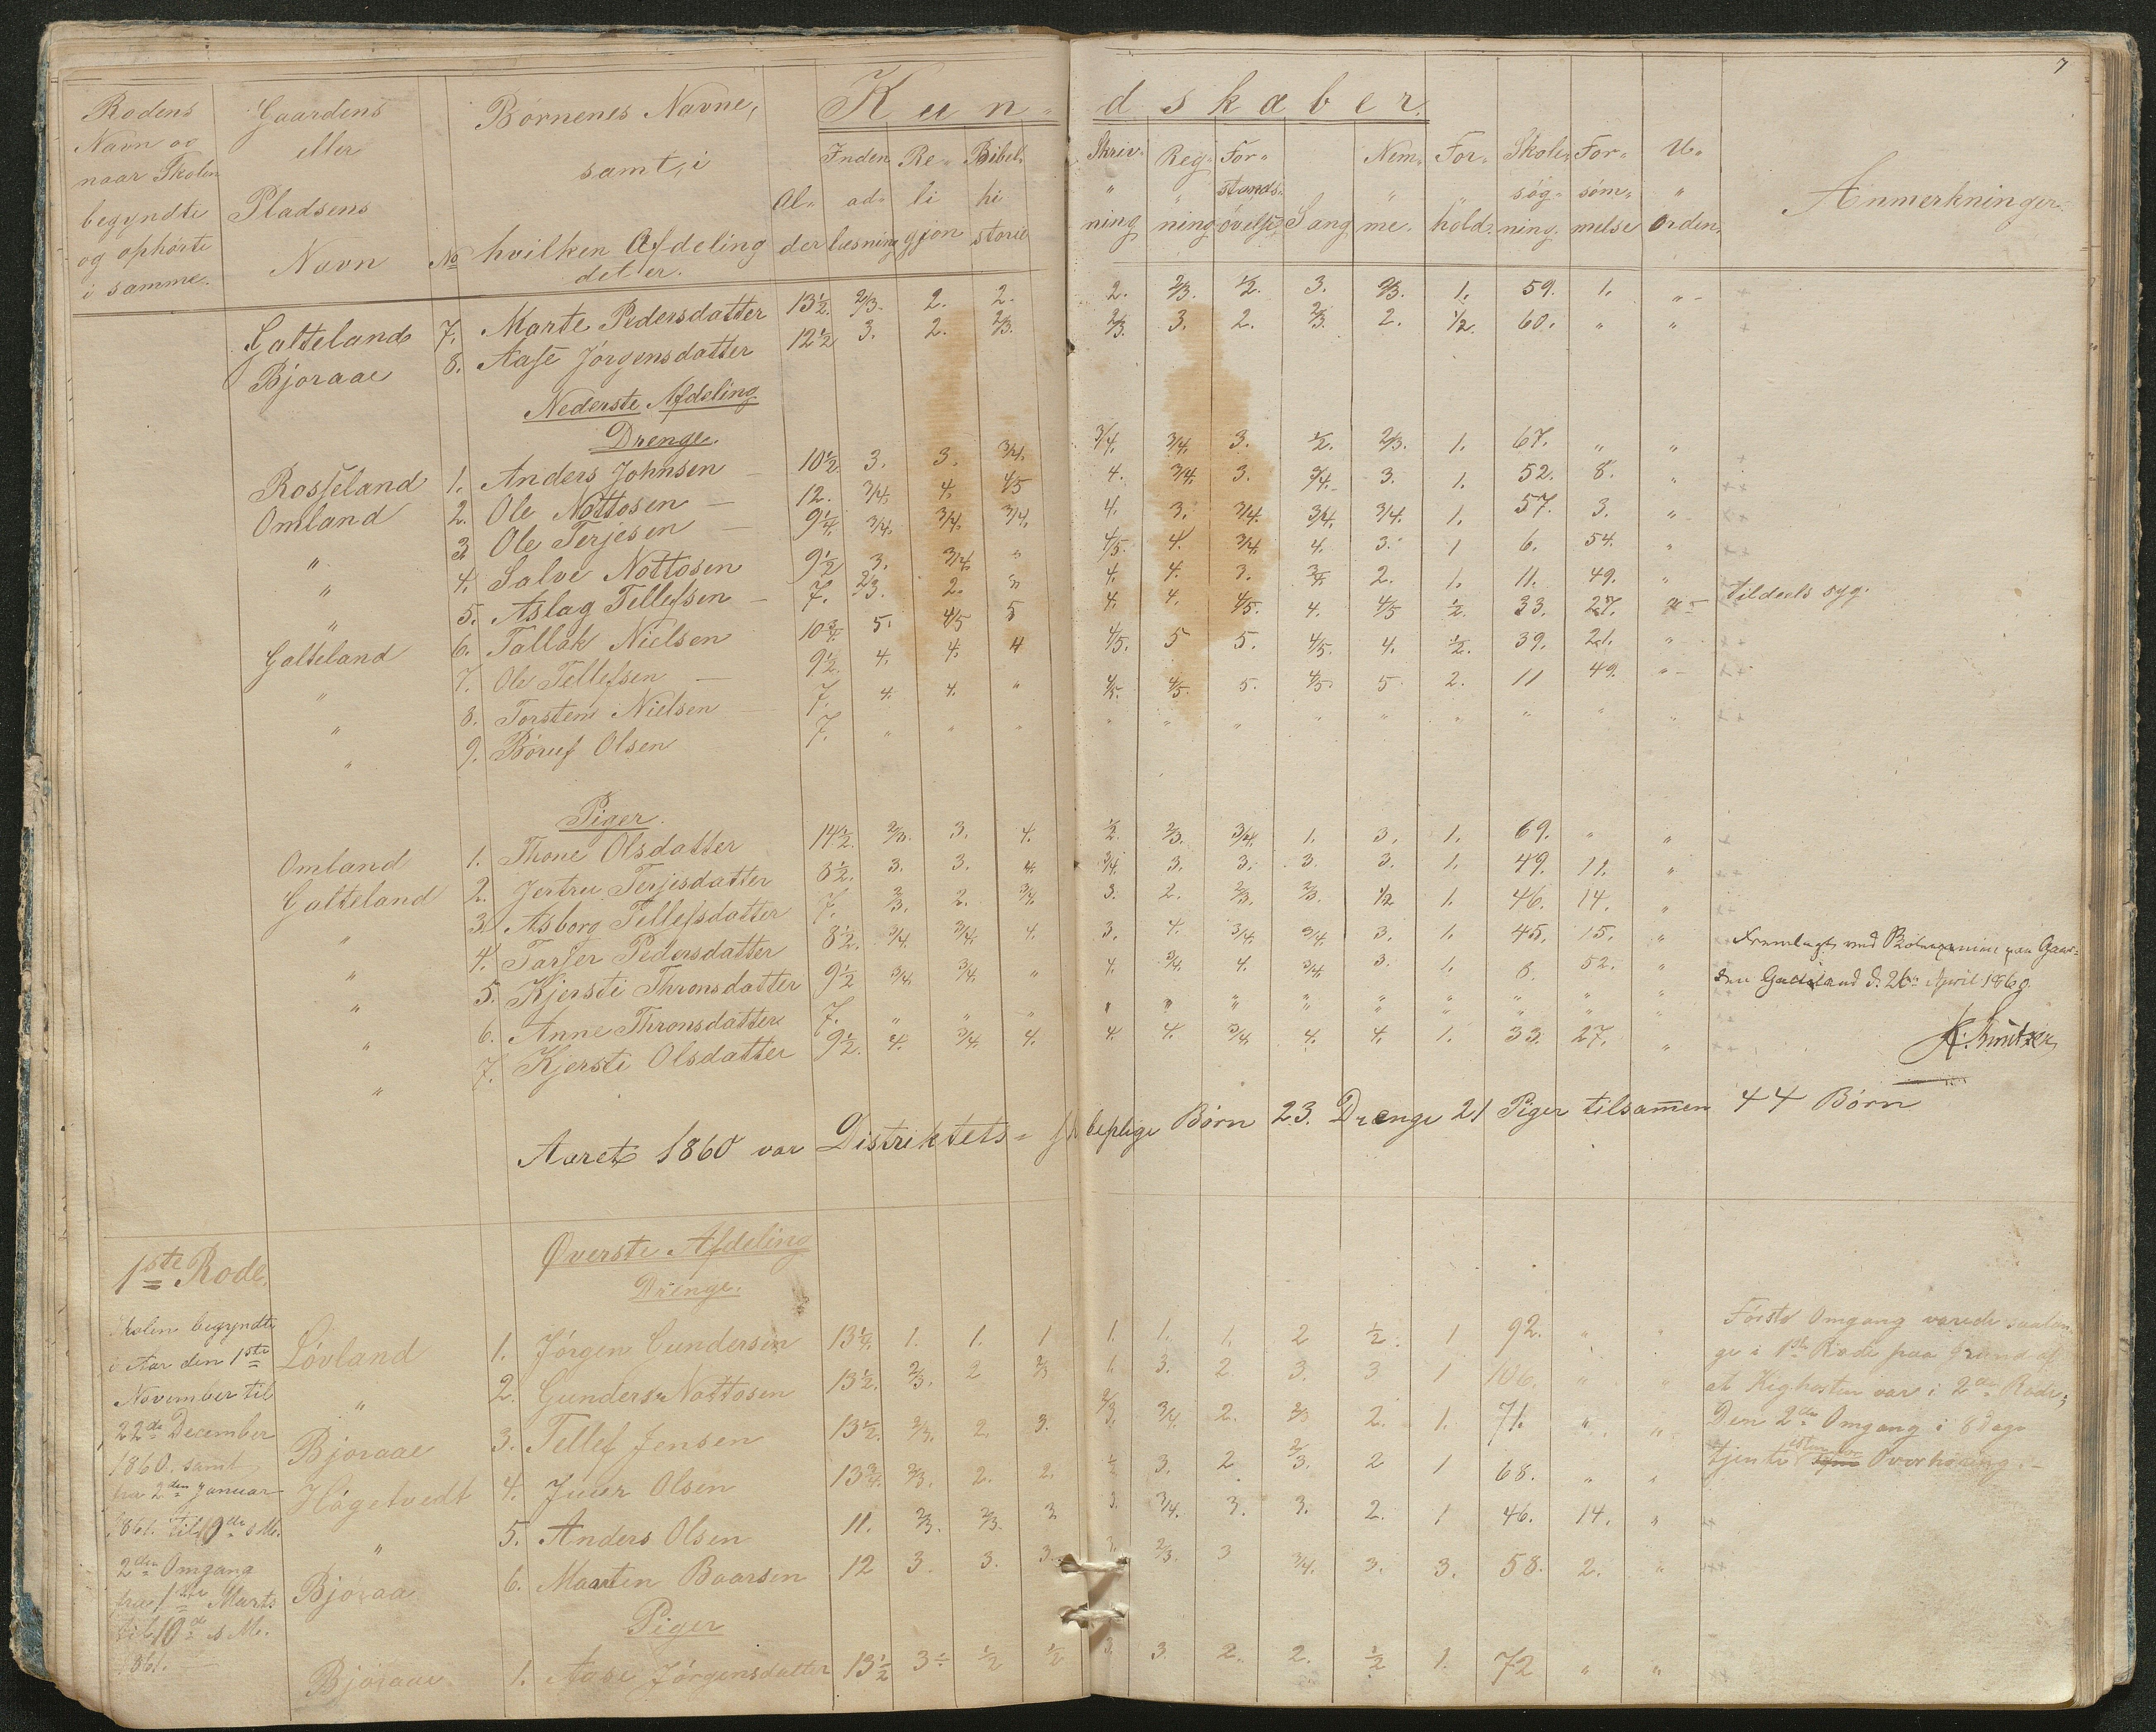 7
Rodens Navn og naar Skolen begyndte og ophørte i samme.
Gaardens eller Pladsens Navn
No
Børnenes Navne, samt, i hvilken Afdeling det er.
Kundskaber.
Alder
Indenadlæsning
Religjon
Bibelhistorie
Skrivning
Regning
Forstandsøvelse
Sang
Nemme.
Forhold.
Skolesøgning.
Forsømmelse
Uorden.
Anmerkninger.
Galteland 7. Marte Pedersdatter 13½. 2/3. 2. 2. 2. 2/3. ½. 3. 2/3. 1. 59. 1. "
Bjoraae 8. Aase Jørgensdatter 12½ 3. 2. 2/3. 2/3. 3. 2. 2/3. 2. ½. 60. " "
Nederste Afdeling.
Drenge.
Rosseland 1. Anders Johnsen 10½ 3. 3. 3/4. 3/4. 3/4. 3. ½. 2/3. 1. 67. " "
Omland 2. Ole Nottosen 12. 3/4. 4. 4/5 4. 3/4. 3. 3/4. 3. 1. 52. 8. "
" 3 Ole Terjesen 9¼. 3/4. 3/4. 3/4. 4. 3. 3/4. 3/4. 3/4. 1. 57. 3. "
" 4. Salve Nottosen 9½ 3. 3/4. " 4/5. 4. 3/4. 4. 3. 1 6. 54. "
" 5. Aslag Tellefsen 7. 2/3. 2. " 4. 4. 3. 3/4. 2. 1. 11. 49. " tildeels syg.
Galteland 6. Tallak Nielsen 10¾. 5. 4/5 5 4. 4. 4/5. 4. 4/5 ½. 33. 27. "
" 7. Ole Tellefsen 9½. 4. 4. 4 4/5. 5 5. 4/5. 4. ½. 39. 21. "
" 8. Torstein Nielsen 7. 4. 4. " 4/5. 4/5. 5. 4/5. 5 2. 11 49. "
" 9. Børuf Olsen 7. " " " " " " " " " " " "
Piger.
Omland 1. Thone Olsdatter 14½. 2/3. 3. 4. ½. 2/3. 3/4. 1. 3. 1. 69. " "
Galteland 2. Jertru Terjesdatter 8½. 3. 3. 4. 3/4. 3. 3. 3. 3. 1. 49. 11. "
" 3. Asborg Tellefsdatter 7. 2/3. 2. 3/4. 3. 2. 2/3. 2/3. ½ 1. 46. 14. "
" 4. Tarjer Pedersdatter 8½. 3/4. 3/4. 4. 3. 4. 3/4. 3/4. 3. 1. 45. 15. "
" 5. Kjersti Thronsdatter 9½ 3/4. 3/4. " 4. 3/4. 4. 3/4. 3. 1. 8. 52. "
" 6. Anne Thronsdatter 7. " " " " " " " " " " " "
" 7. Kjersti Olsdatter 9½. 4. 3/4. 4. 4. 4. 3/4. 4. 4. 1. 33. 27. "
Fremlagt ved paa Gaar-
den Galteland d. 26de April 1860.
Aaret 1860 var Distriktets Børn 23. Drenge 21 Piger tilsammen 44 Børn
1ste Rode.
Skolen begyndte
i Aar den 1ste
November til
22de December
1860. samt
fra 2den Januar
1861. til 9de s M.
2den Omgang
fra 1ste Marts
til 10de s M.
1861.
Øverste Afdeling
Drenge.
Løvland 1. Jørgen Gundersen 13¼. 1. 1. 1 1. 1. 1. 2 ½. 1 92. " "
" 2. Gunder Nottosen 13½. 2/3. 2 2/3 1. 3. 2. 3. 3 1 106. " "
Bjoraae 3. Tellef Jensen 13½. 2/3. 2. 3. 2/3. 3/4. 2. 2/3 2. 1. 71. " "
Høgetvedt 4. Juer Olsen 13¾. 2/3. 2. 2. ½ 3. 2. 2/3. 2 1 68. " "
" 5. Anders Olsen 11. 2/3. 2/3. 3 3. 3/4. 3. 3. 2. 1 46. 14. "
Bjoraae 6. Maarten Baarsen 12 3. 3. 3. 3. 2/3. 3 3/4. 3. 3. 58. 2. "
Piger
Bjoraae 1. Aase Jørgensdatter 13½ 3 ½ ½ 3. 3. 2. 2. ½ 1. 72 " "
Første Omgang varede saalæn
ge i 1ste Rode paa Grund af
at Kighosten var i 2den Rode;
Den 2den Omgang i 8 Dage
tjente Overhøring.